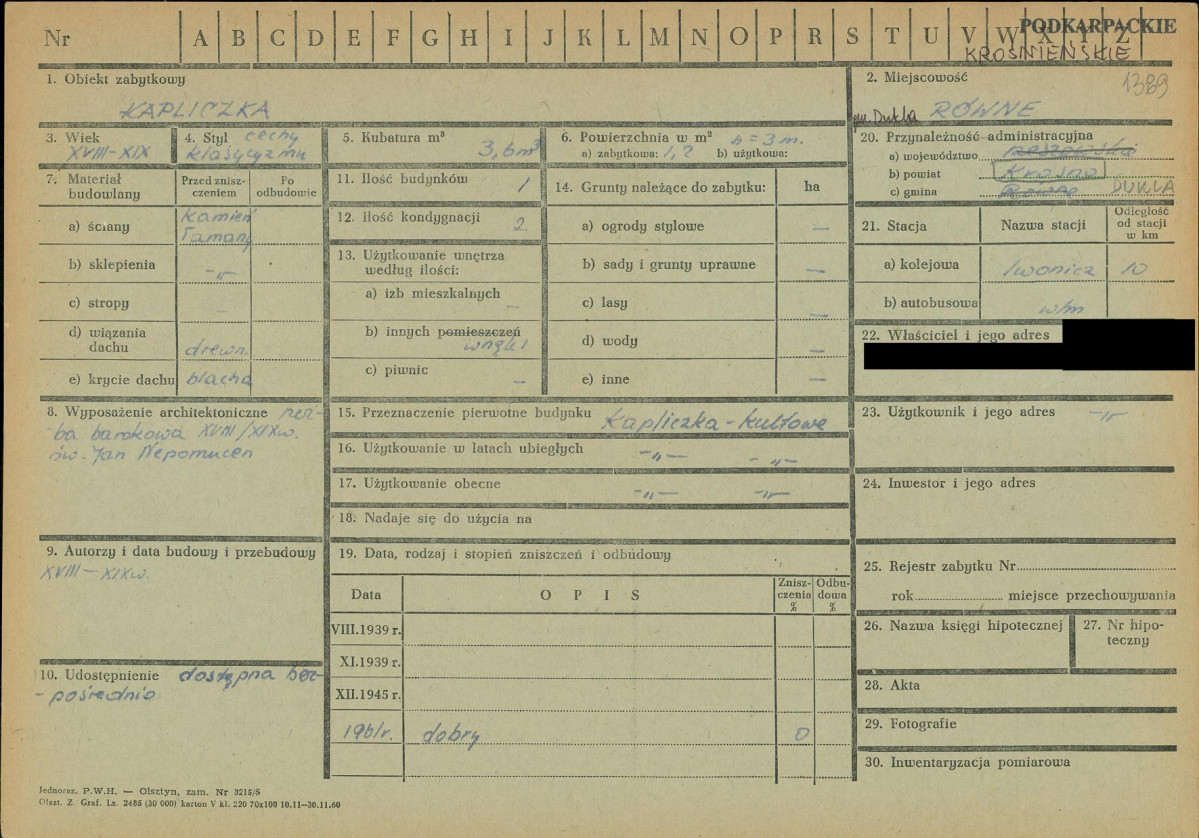 Nr A B C D E F G H I J K L M N O P R S T U V W X Y Z
PODKARPACKIE
KROŚNIEŃSKIE
1. Obiekt zabytkowy
KAPLICZKA
2. Miejscowość
1389
gm. Dukla RÓWNE
3. Wiek
XVIII-XIX
4. Styl cechy
klasycyzmu
5. Kubatura m³
3,6m³
6. Powierzchnia w m² h=3m.
a) zabytkowa: 1,2 b) użytkowa:
20. Przynależność administracyjna
a) województwo rzeszowskie
b) powiat Krosno
c) gmina Równe DUKLA
7. Materiał budowlany
Przed zniszczeniem
Po odbudowie
a) ściany
kamień
łamany
b) sklepienia -„-
c) stropy -
d) wiązania
dachu drewn.
e) krycie dachu blacha
11. Ilość budynków 1
12. Ilość kondygnacji 2
13. Użytkowanie wnętrza
według ilości:
a) izb mieszkalnych -
b) innych pomieszczeń
wnęki 1
c) piwnic -
14. Grunty należące do zabytku: ha
a) ogrody stylowe -
b) sady i grunty uprawne -
c) lasy -
d) wody -
e) inne -
21. Stacja
Nazwa stacji
Odległość
od stacji
w km
a) kolejowa Iwonicz 10
b) autobusowa w/m
22. Właściciel i jego adres
8. Wyposażenie architektoniczne rzeź-
ba barokowa XVIII/XIXw.
św. Jan Nepomucen
15. Przeznaczenie pierwotne budynku Kapliczka - kultowe
16. Użytkowanie w latach ubiegłych -„- -„-
17. Użytkowanie obecne -„- -„-
18. Nadaje się do użycia na
23. Użytkownik i jego adres -„-
24. Inwestor i jego adres
9. Autorzy i data budowy i przebudowy
XVIII-XIXw.
19. Data, rodzaj i stopień zniszczeń i odbudowy
Data
OPIS
Znisz-
czenia
%
Odbu-
dowa
%
VIII.1939 r.
XI.1939 r.
XII.1945 r.
1961r. dobry 0
25. Rejestr zabytku Nr
rok miejsce przechowywania
26. Nazwa księgi hipotecznej
27. Nr hipo-
teczny
10. Udostępnienie dostępna bez-
- pośrednio
28. Akta
29. Fotografie
30. Inwentaryzacja pomiarowa
Jednoraz. P.W.H. — Olsztyn, zam. Nr 3215/S
Olszt. Z. Graf. Lz. 2485 (30 000) karton V kl. 220 70x100 10.11—30.11.60